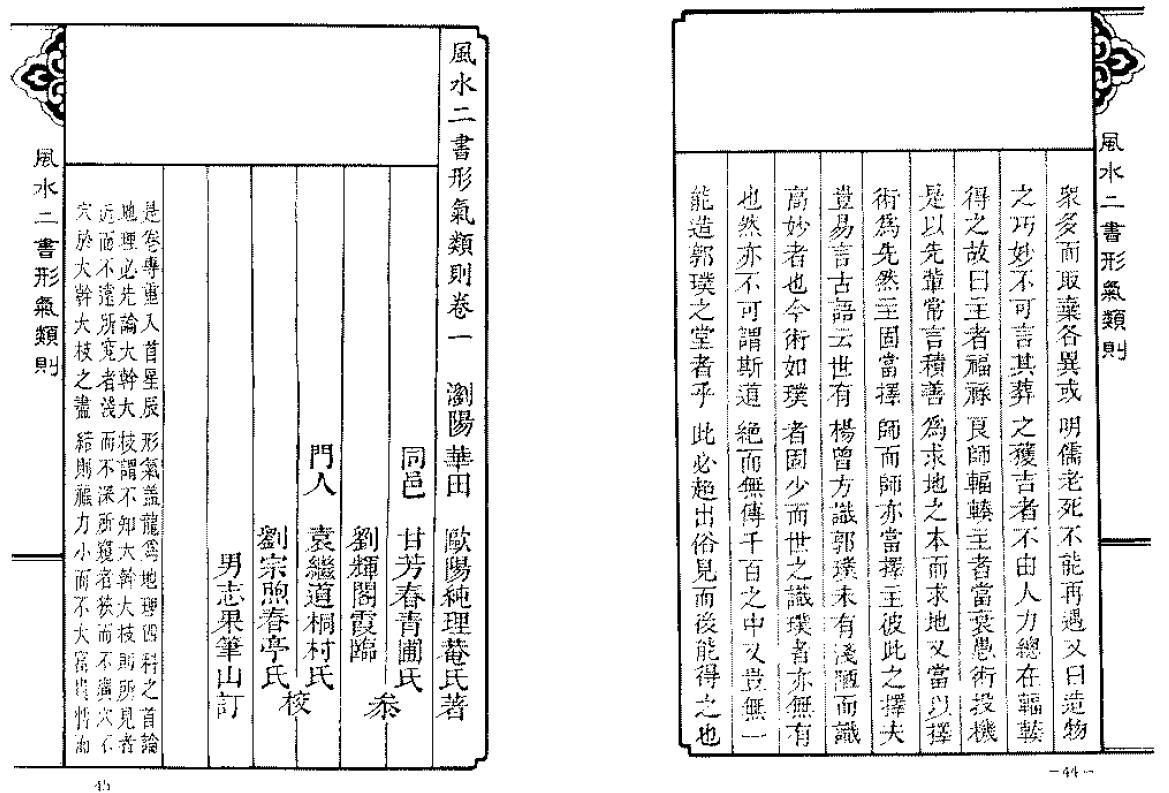 風水二書形氣類則
眾多而取棄各異或明儒老死不能再遇又曰造物
之巧妙不可言其葬之獲吉者不由人力總在輻輳
得之故曰主者福祿良師輻輳主者當衰愚術投機
是以先輩常言積善為求地之本而求地又當以擇
術為先然主固當擇師而師亦當擇主彼此之擇夫
豈易言古語云世有楊曾方識郭璞未有淺陋而識
高妙者也今術如璞者固少而世之識璞者亦無有
也然亦不可謂斯道絕而無傳千百之中又豈無一
能造郭璞之堂者乎此必超出俗見而後能得之也
-44-
風水二書形氣類則卷一 瀏陽華田 歐陽純理菴氏著
同邑 甘芳春青圃氏
劉輝閣霞臨 叅
門人 袁繼道桐村氏
劉宗煦春亭氏 校
男志果筆山訂
是卷專重入首星辰形氣蓋龍為地理四科之首論
地理必先論大幹大枝謂不知大幹大枝則所見者
近而不遠所究者淺而不深所窺者狹而不廣穴不
穴於大幹大枝之盡結則福力小而不大富貴惜而
風水二書形氣類則
45